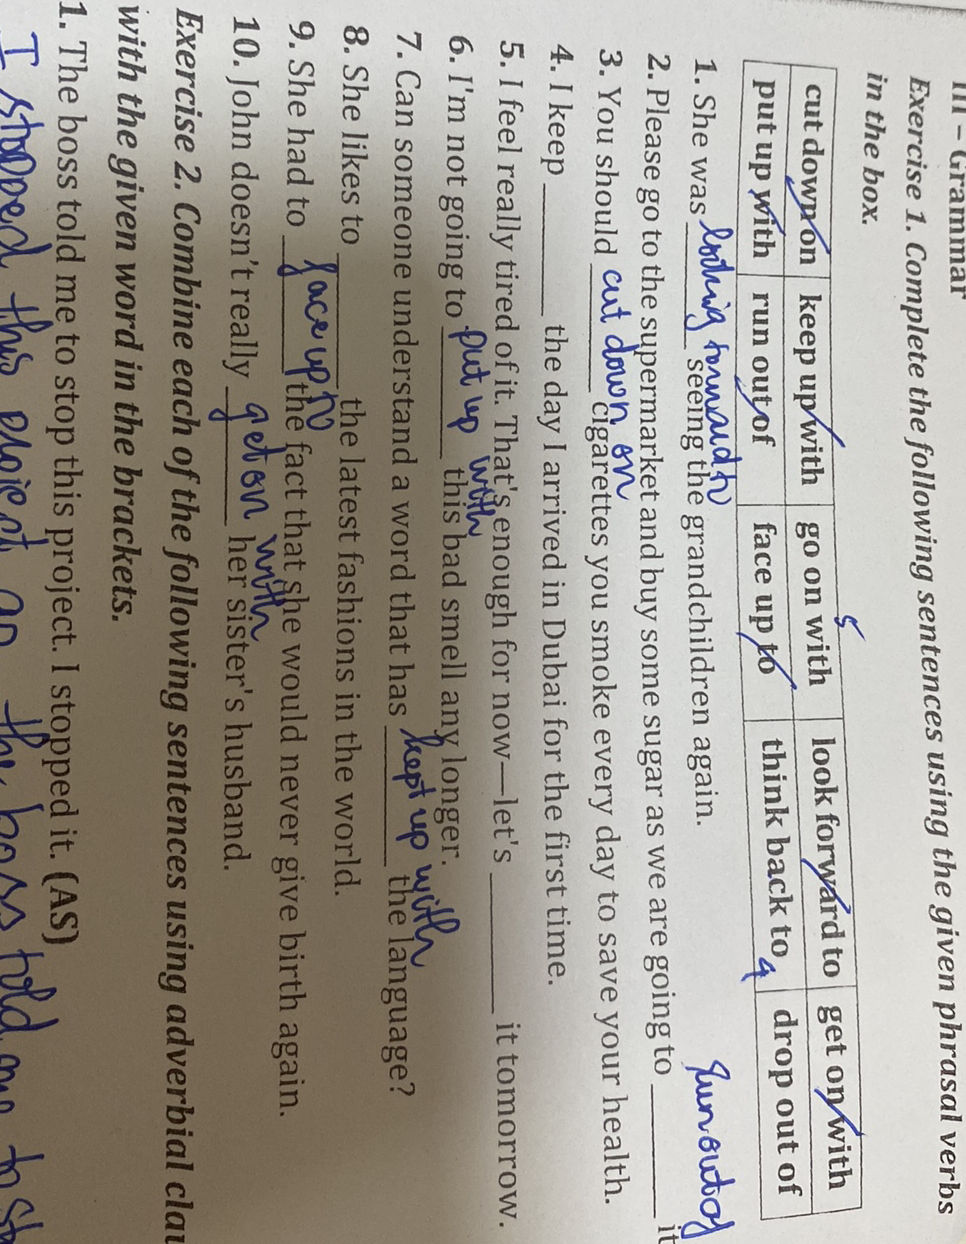 III – Grammar
Exercise 1. Complete the following sentences using the given phrasal verbs
in the box.
cut down on keep up with go on with 5 look forward to get on with
put up with run out of face up to think back to 4 drop out of
1. She was looking forward to seeing the grandchildren again.
2. Please go to the supermarket and buy some sugar as we are going to run out of it
3. You should cut down on cigarettes you smoke every day to save your health.
4. I keep ______ the day I arrived in Dubai for the first time.
5. I feel really tired of it. That's enough for now—let's ______ it tomorrow.
6. I'm not going to put up with this bad smell any longer.
7. Can someone understand a word that has kept up with the language?
8. She likes to ______ the latest fashions in the world.
9. She had to face up to the fact that she would never give birth again.
10. John doesn't really get on with her sister's husband.
Exercise 2. Combine each of the following sentences using adverbial clau
with the given word in the brackets.
1. The boss told me to stop this project. I stopped it. (AS)
I stopped this project as the boss told me to st